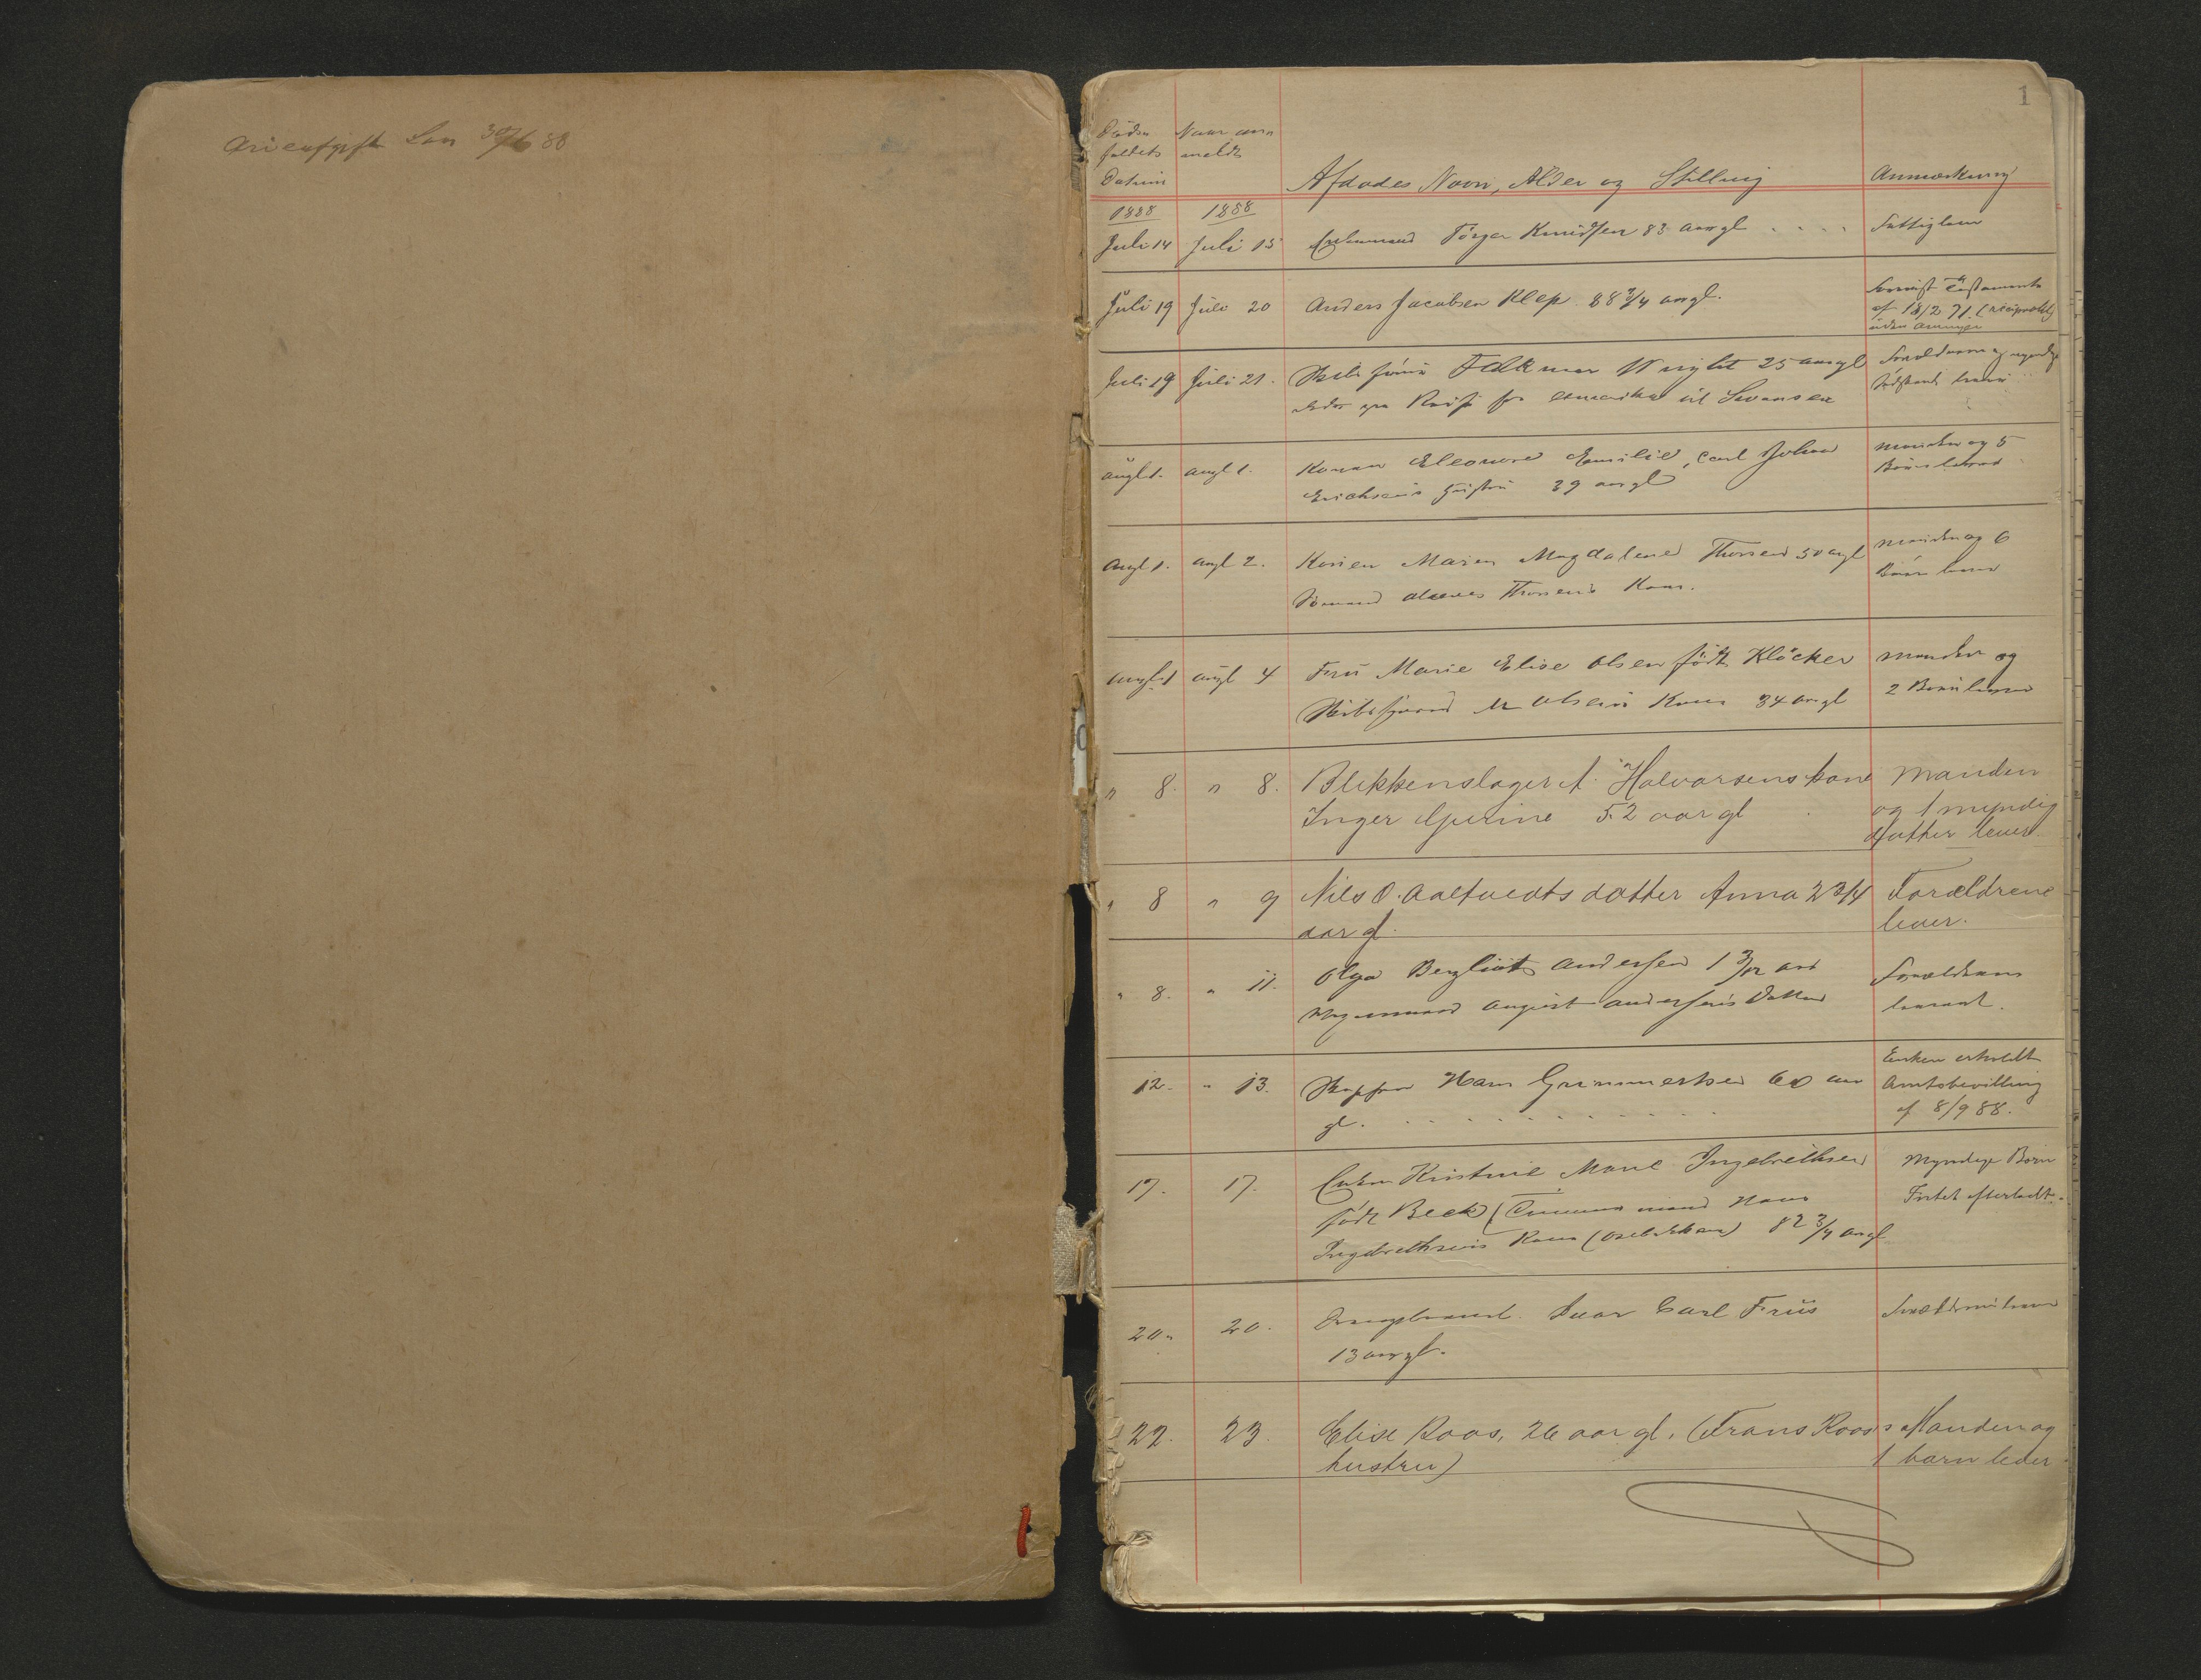 Lov 30/6 88
1
Dødsfaldets Datum
Naar anmeldt
Afdødes Navn, Alder og Stilling
Anmærkning
1888 1888
Juli 14 Juli 15 Enkemand Tørger Knudsen 83 aar gl Fattiglem
Juli 19 Juli 20 Anders Jacobsen Klep 88 3/4 aar gl. Testamente
af 18/2 71. (reciprokt)
uden
Juli 19 Juli 21. Falkmar Wright 25 aar gl
paa Reise fra til Swansea
Augt 1. Augt 1. Konen Eleonore Emilie, Carl Johan Manden og 5
Erichsens Hustru 39 aar gl Børn
Augt 1. Augt 2. Konen Maren Magdalene Thorsen 50 aar gl Manden og 6
Sømand Thorsens Kone. Børn lever
Augt 1 Augt 4 Fru Marie Elise Olsen født Klöcker Manden og
Olsens Kone 34 aar gl 2 Børn lever
" 8. " 8. Blikkenslager A. Halvorsens kone Manden
Inger Gurine 52 aar gl og 1 myndig
datter lever
" 8 " 9 Nils O. Aaltvedts datter Anna 2 3/4 Forældrene
aar gl. lever.
" 8. " 11. Olga Bergliot Andersen 1 3/12 aar Forældrene
August Andersens Datter
12. " 13. Hans Gunmertsen 60 aar Enken erholdt
gl. Amtsbevilling
af 8/9 88.
17. 17. Enken Kristine Marie Ingebrethsen Myndige Børn
født Beck (Tømmermand Hans Intet efterladt.
Ingebrethsens Kone 82 3/4 aar gl
20. 20. Ivar Carl Friis
13 aar gl.
22. 23. Elise Roos, 26 aar gl. (Frans Roos's Manden og
hustru) 1 barn lever